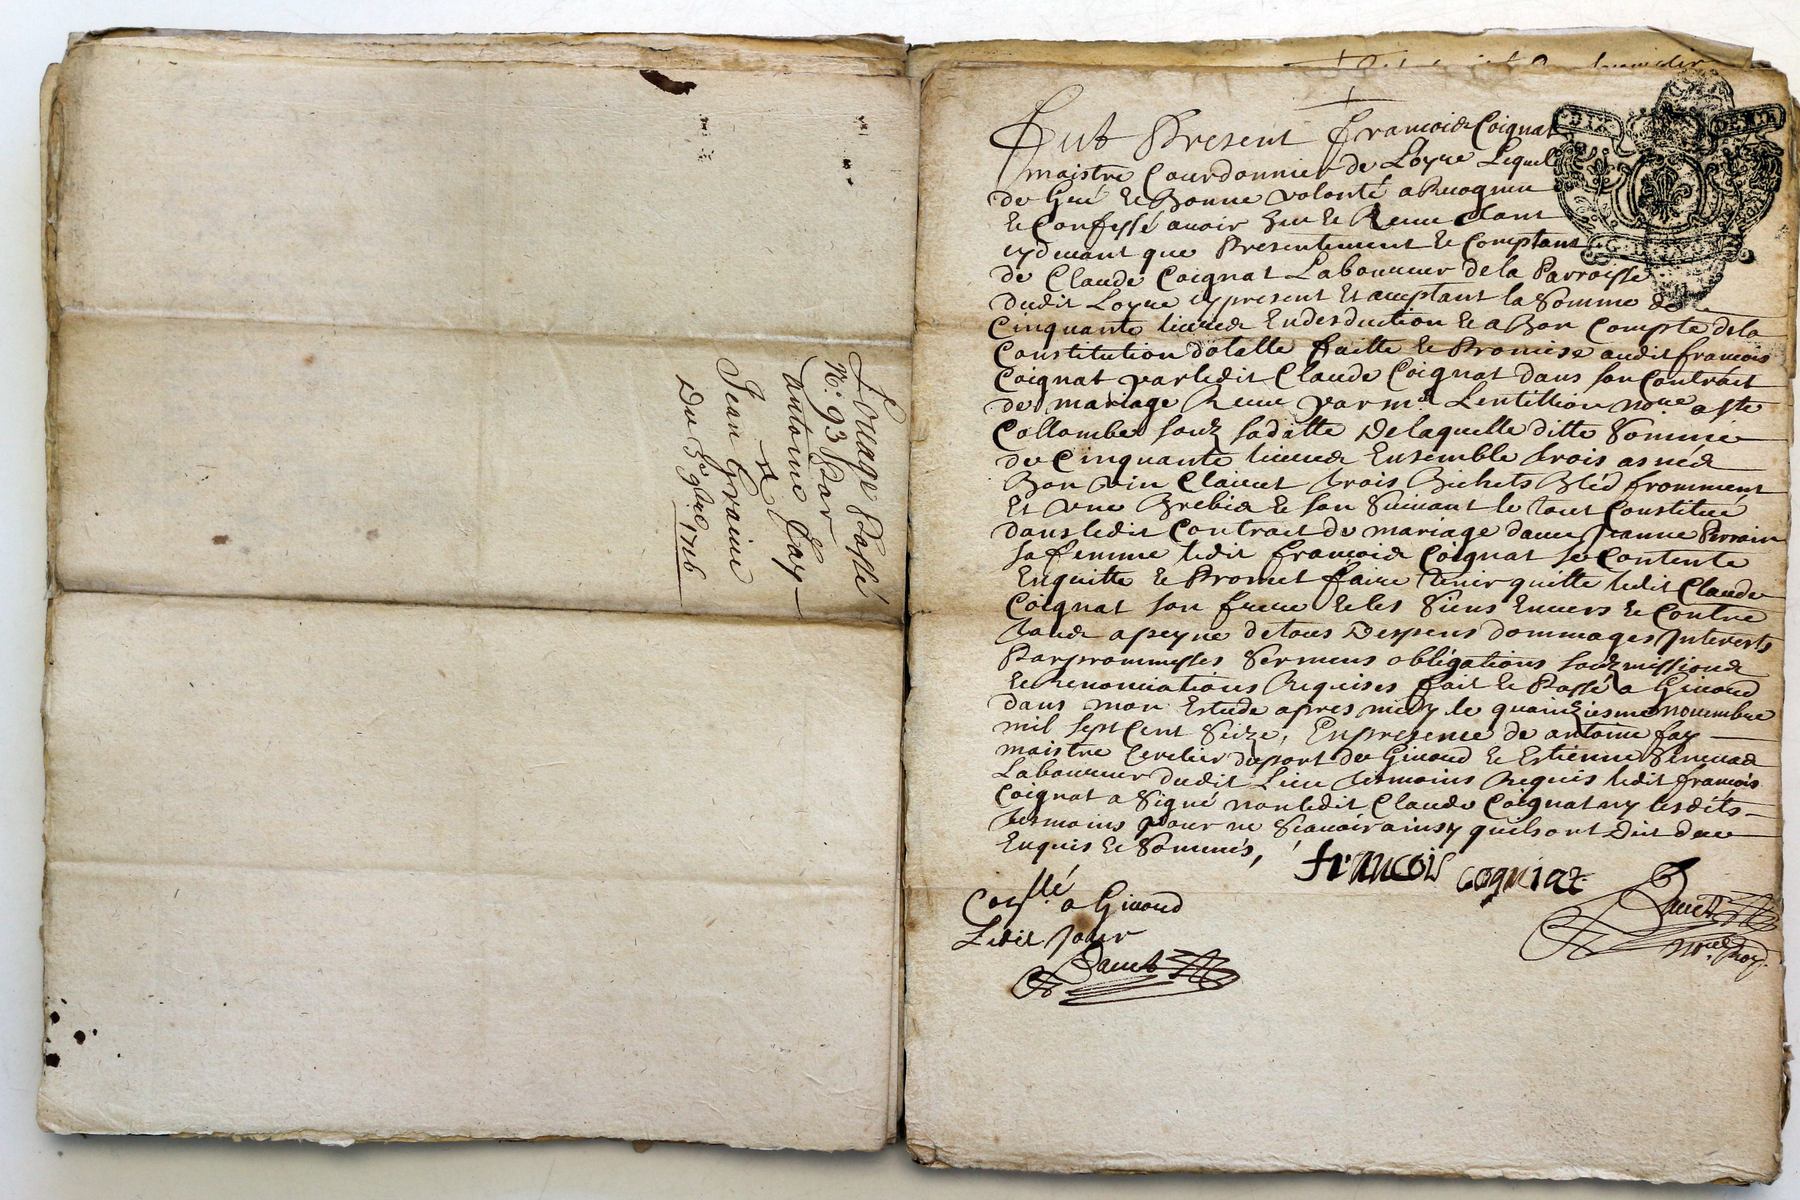 Louage Passé
N.º 93 Par
antoine Fay
a
Jean Graine
Du 3e 9bre 1716
Fut Present Francois Coignat
maistre Courdonnier de Loyre Lequel
de Gré et Bonne volonté a Recogneu
et Confessé avoir Heu et Receu tant
cydevant que Presentement et Comptant
de Claude Coignat Laboureur de la Parroisse
dudit Loyre cypresent et acceptant la Somme de
Cinquante livres Endesduction et a Bon Compte dela
Constitution dotalle faitte et Promise audit francois
Coignat par ledit Claude Coignat dans son Contrait
de mariage Receu par me Lentillion nore a ste
Collombe souz sa datte Delaquelle ditte Somme
de Cinquante livres Ensemble trois asnés
Bon vin Clairet trois Bichets Bled fromment
Et une Brebis et son Suivant le tout Constitué
dans ledit Contrait de mariage dame Jeanne Perrain
sa femme ledit francois Coignat se Contente
Enquitte et Promet faire tenir quitte ledit Claude
Coignat son frere et les Siens Envers et Contre
tous a peyne de tous Despens dommages Interests
Par prommesses Sermens obligations souzmissions
et Renonciations Requises fait et Passé a Givord
dans mon Estude apres midy le quainziesme novembre
mil sept Cent Seize, En presence de antoine fay
maistre Cerclier du port de Givord et Estienne
Laboureur dudit Lieu tesmoins Requis ledit francois
Coignat a Signé non ledit Claude Coignat ny lesdits
tesmoins pour ne Scavoir ainsy quils ont Dit de ce
Enquis et Sommés,
francois cogniat
nore Roy.
Conllé a Givord
Ledit Jour